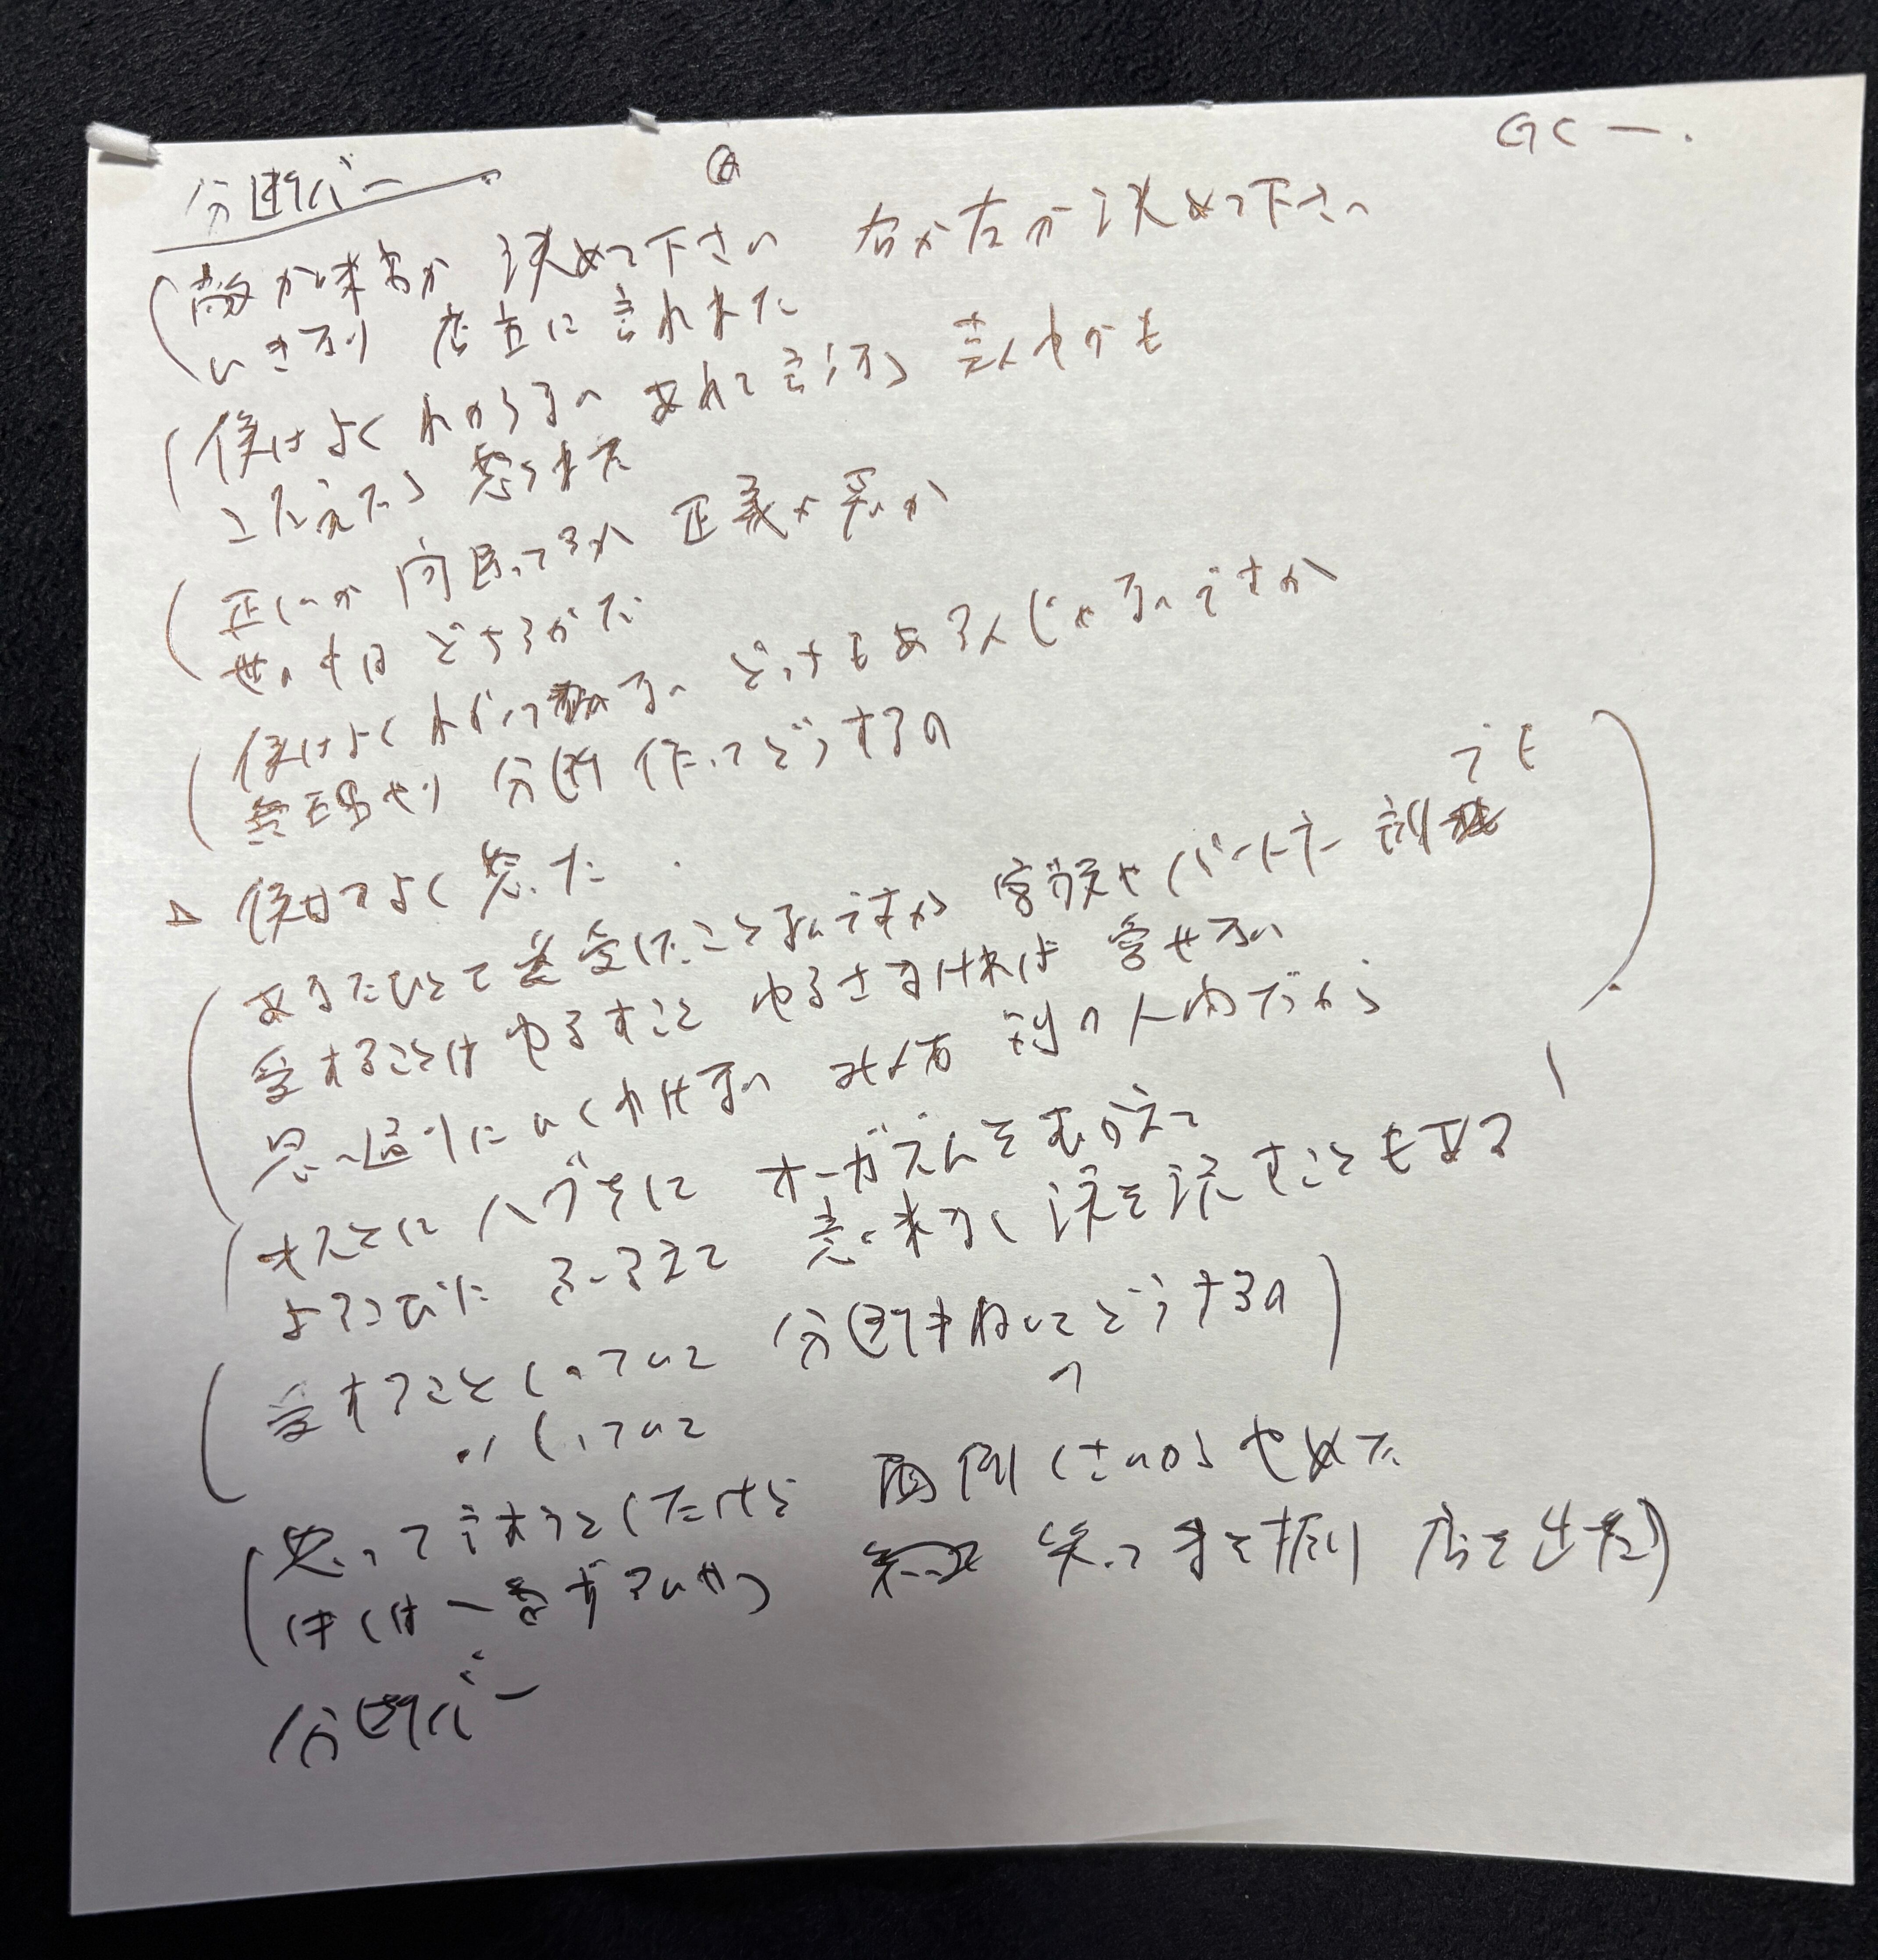 分断バー
GC ー.
敵か味方か 決めて下さい 右か左か決めて下さい
いきなり 店主に言われた
僕はよくわからない あれて言うなら 芸人かも
こたえたら 怒られた
正しいか 間違ってるか 正義か悪か
世の中は どちらかだ
僕はよくわかってない どっちもあるんじゃないですか
無理やり 分断作ってどうするの
僕はてよく 怒った
でも
あなたひとて愛したことないですか 家族やパートナー
愛することは ゆるすこと ゆるさなければ 愛せない
思い通りにいくわけない みんな 別の人間だから
オスとに ハブキに オーガズムをむかえて
よろこびに ふるえて 意味なく 涙を流すこともある
愛すること しっていて 分断まねいてどうするの
〃 しっていて
怒って言おうとしたけど 面倒くさいからやめた
ぼくは一番ずるいやつ 笑って手を振り 店を出た
分断バー